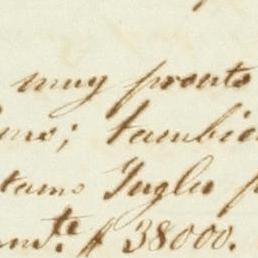 muy pronto
smo; tambien
stamo Ingles p
mte. $ 38000.